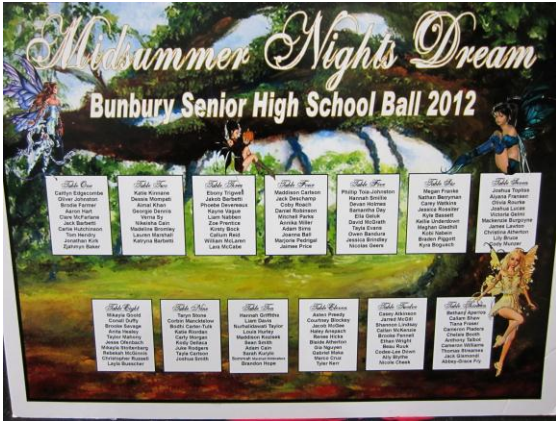 Midsummer Nights Dream
Bunbury Senior High School Ball 2012
Table One
Caitlyn Edgecombe
Oliver Johnston
Brodie Farmer
Aaron Hart
Clare McFarlane
Jack Barbetti
Carlie Hutchinson
Tom Hendry
Jonathan Kirk
Table Two
Katie Kinnane
Dessia Mompati
Aimal Khan
Georgie Dennis
Verna Sy
Nikeisha Cain
Madeline Bromley
Lauren Marshall
Katryna Barbetti
Table Three
Ebony Trigwell
Jakob Barbetti
Phoebe Devereaux
Rayne Vague
Liam Nebben
Zoe Prentice
Kirsty Bock
Callum Reid
William McLaren
Lara McCabe
Table Four
Maddison Carlson
Jack Deschamp
Coby Roach
Daniel Robinson
Mitchell Parks
Annika Miller
Adam Sims
Joanna Ball
Marjorie Pedrigal
Jaimee Price
Table Five
Phillip Tola-Johnston
Hannah Smillie
Devan Holmes
Samantha Day
Ella Geluk
David McGrath
Tayla Evans
Owen Bandura
Jessica Brindley
Nicolas Geers
Table Six
Megan Franke
Nathan Berryman
Carey Watkins
Jessica Rossiter
Kyle Bassett
Kellie Underdown
Meghan Gledhill
Kobi Nabein
Braden Piggott
Kyra Bogusch
Table Seven
Joshua Toplius
Aryana Fransen
Olivia Rourke
Joshua Lucas
Victoria Gelmi
Mackenzie Burgoyne
James Lawton
Christina Atherton
Lily Bruce
Munzer
Table Eight
Mikayla Gould
Conall Duffy
Brooke Savage
Anita Healey
Taylor Mahony
Jesse Ofenbach
Mikayla Stoltenberg
Rebekah McGinnis
Christopher Russell
Layla Buescher
Table Nine
Taryn Slone
Bodhi Carter-Tulk
Kate Riordan
Carly Morgan
Kody Dellaca
Jake Rodgers
Tayla Carlson
Joshua Smith
Table Ten
Hannah Griffiths
Liam Davis
Nurhalidawati Taylor
Louis Hurley
Maddison Koziaek
Sean Smith
Adam Cain
Sarah Kurylo
Brandon Hope
Table Eleven
Aston Preedy
Courtney Blockey
Jacob McGee
Haley Anspach
Renee Hicks
Blande Atherton
Gia Nguyen
Gabriel Maka
Marco Cruz
Tyler Kerr
Table Twelve
Casey Atkinson
Jarred McGill
Shannon Lindsay
Callan McKenzie
Brooke Pennell
Ethan Wright
Beau Rouk
Codee-Lee Down
Ally Blythe
Nicole Cheek
Table Thirteen
Bethany Aparicio
Callam Shaw
Tiana Fraser
Cameron Paders
Chelsie Booth
Anthony Talbot
Cameron Williams
Thomas Streames
Jack Gismondi
Abbey-Grace Fry